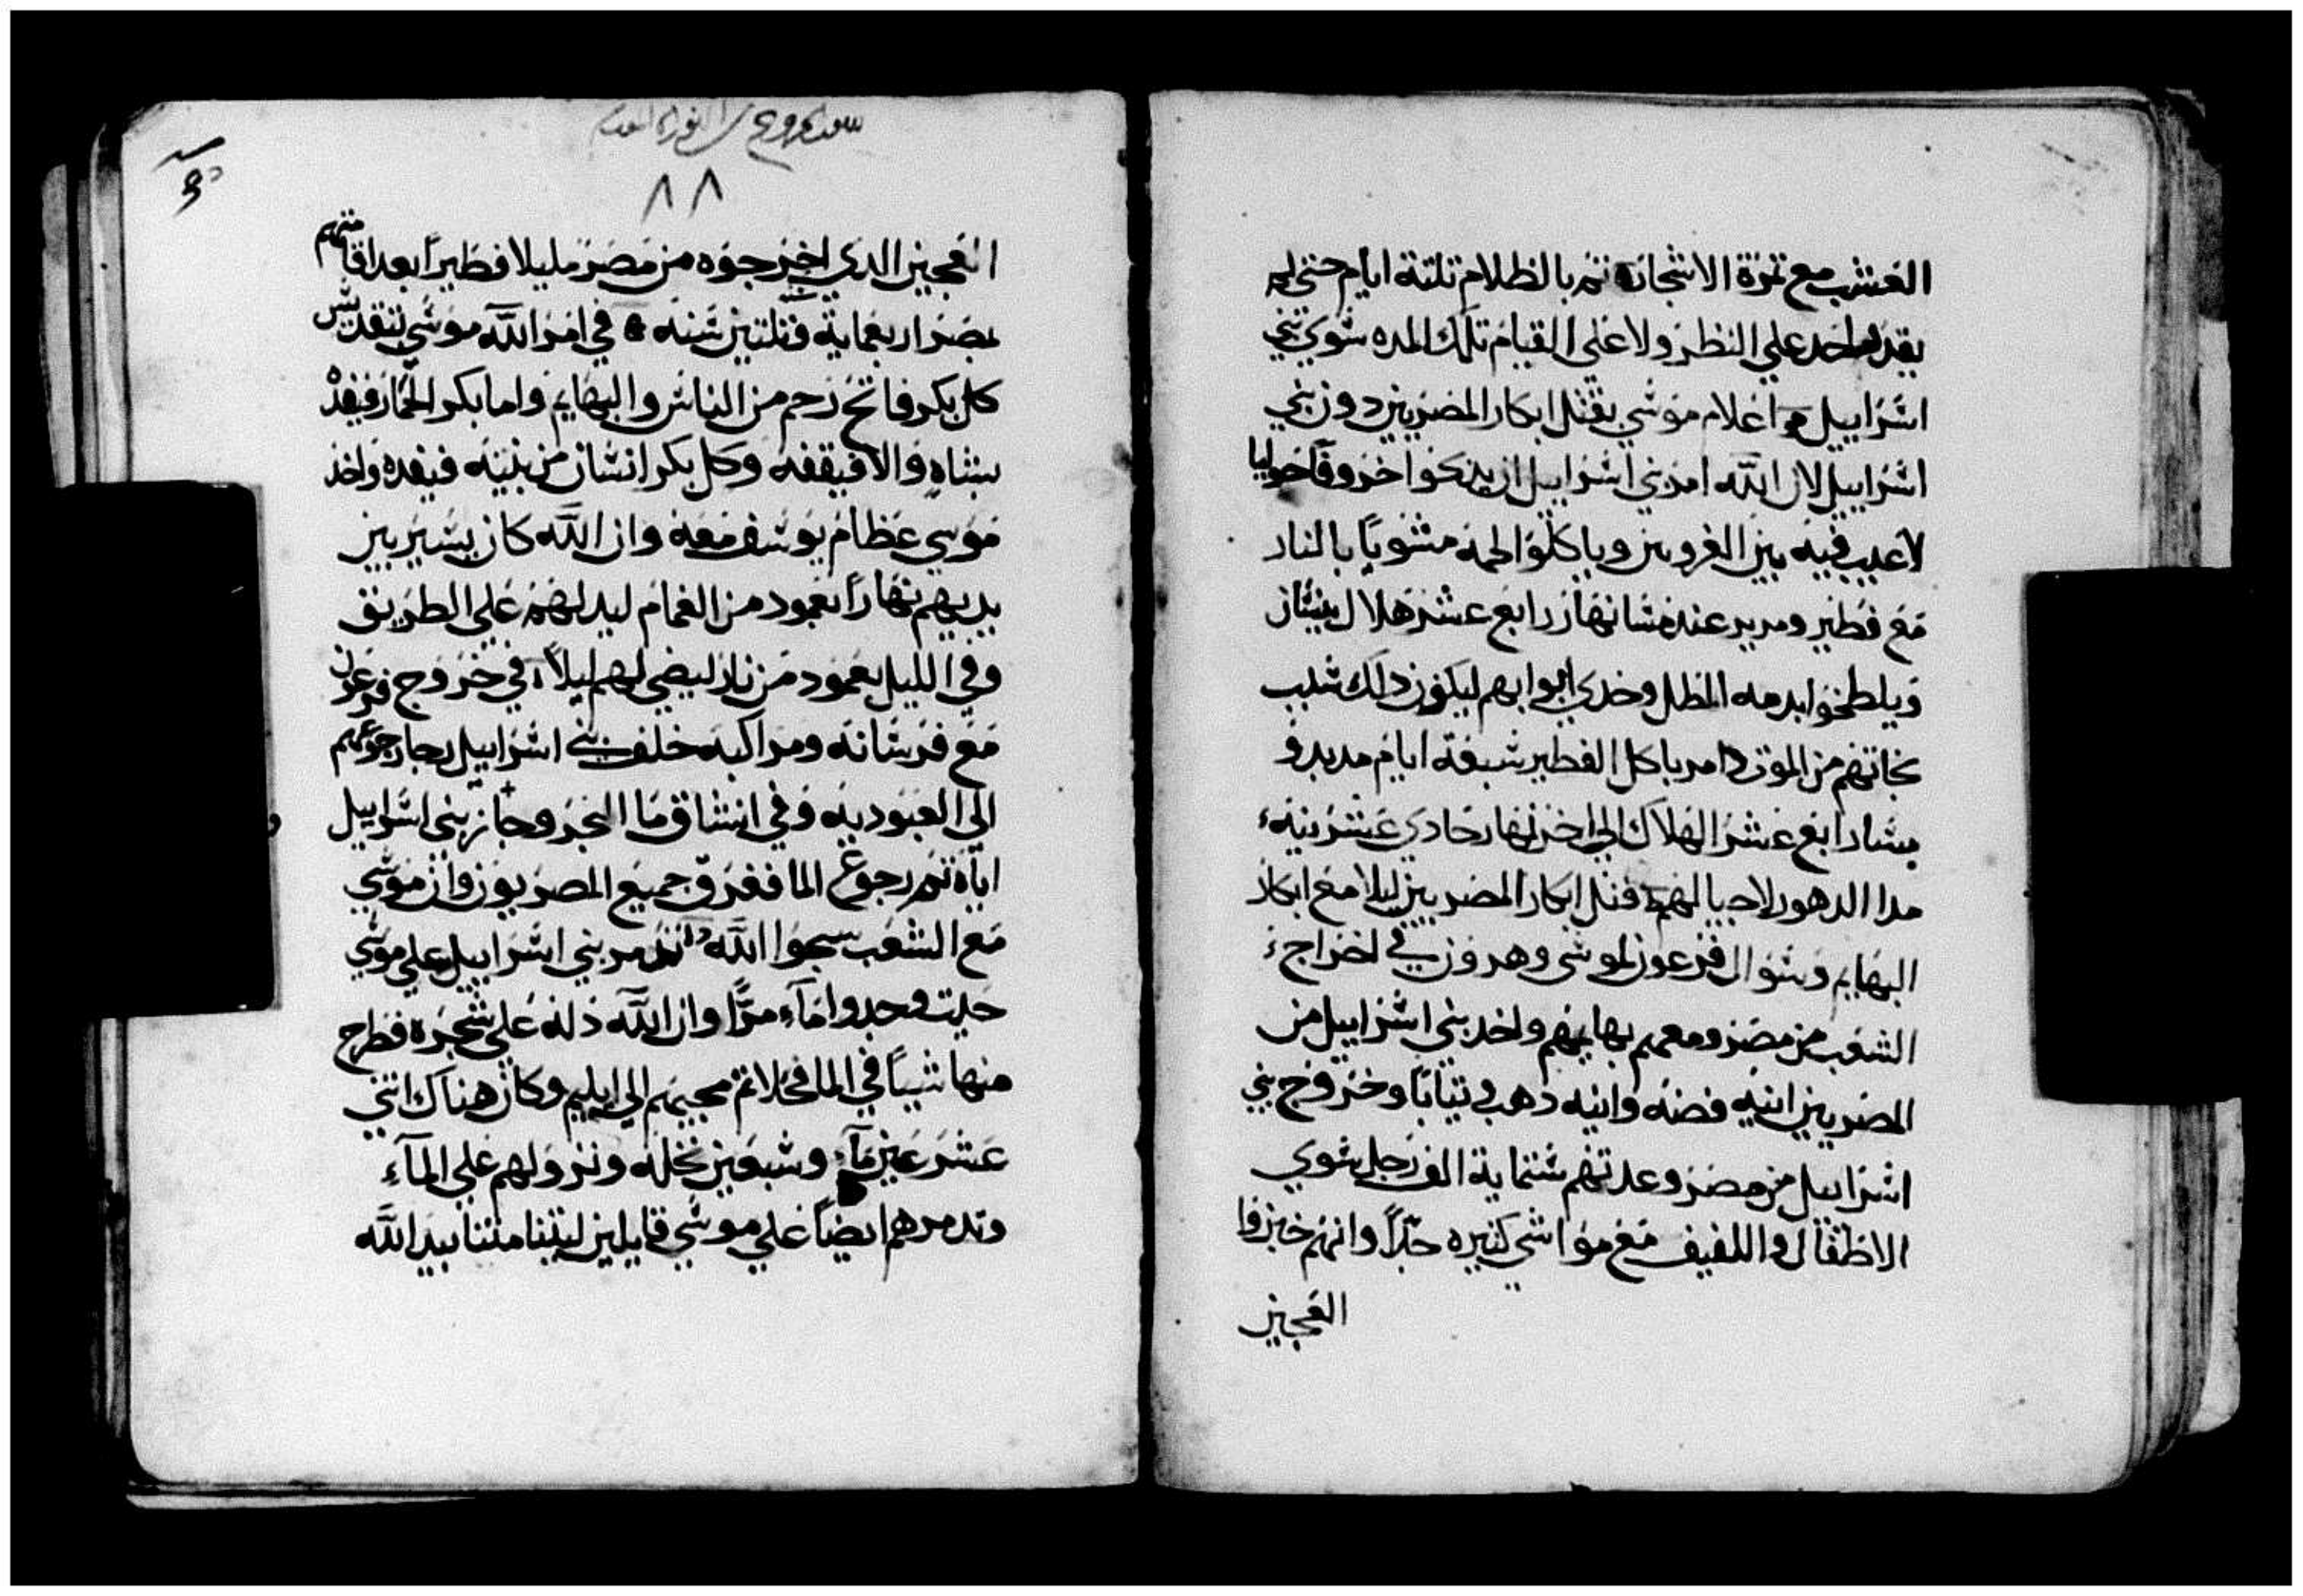 العشب مع ثمرة الاشجار ثم بالظلام تلتة ايام حتي لم
يقدر احد علي النظر ولا علي القيام تلك المده سوي بني
اسراييل اعلام موسي بقتل ابكار المصريين دون بني
اسراييل لان الله امر بني اسراييل ان يذبحوا خروفا حوليا
لا عيب فيه بين الغروبين وياكلوا لحمه مشويا بالنار
مع فطير ومرير عند مسا نهار رابع عشر هلال نيسان
ويلطخوا بدمه المطل وخدي ابوابهم ليكون دالك سبب
نجاتهم من الموت وامر باكل الفطير سبعة ايام مدبدو
مسا رابع عشر الهلال الي اخر نهار حادي عشرينه
مدا الدهور لاجيالهم قتل ابكار المصريين ليلا مع ابكار
البهايم وسوال فرعون لموسي وهرون في اخراج
الشعب من مصر ومعهم بهايمهم واخد بني اسراييل من
المصريين انيه فضه وانيه دهب و تيابا وخروج بني
اسراييل من مصر وعدتهم ستماية الف رجل سوي
الاطفال واللفيف مع مواشي كتيره جدا وانهم خبزوا
العجين
٨٨
العجين الدي اخرجوه من مصر مليلا فطيرا بعد اقامتهم
بمصر اربعماية وتلتين سنه في امر الله موسي بتقديس
كل بكر فاتح رحم من الناس والبهايم واما بكر الحمار فيفده
بشاه والا فيقفه وكل بكر انسان من بنيه فيفده واخذ
موسي عظام يوسف معه وان الله كان يسير بين
يديهم نهارا بعمود من الغمام ليدلهم علي الطريق
وفي الليل بعمود من نار ليضي لهم ليلا في خروج فرعون
مع فرسانه ومراكبه خلف بني اسراييل رجوعهم
الي العبوديه وفي انشاق ما البحر وجاز بني اسراييل
اياه ثم رجوع الما فغرق جميع المصريون وان موسي
مع الشعب سبحوا الله تدمر بني اسراييل علي موسي
حيت وجدوا ماء مرا وان الله دله علي شجره فطرح
منها شيا في الما فحلا ثم مجيهم الي ايليم وكان هناك اتني
عشر عين ماء وسبعين نخله ونزولهم علي الماء
وتدمرهم ايضا علي موسي قايلين ليتنا متنا بيد الله